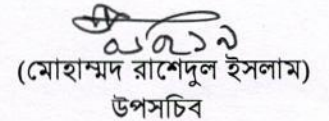 (মোহাম্মদ রাশেদুল ইসলাম)
উপসচিব